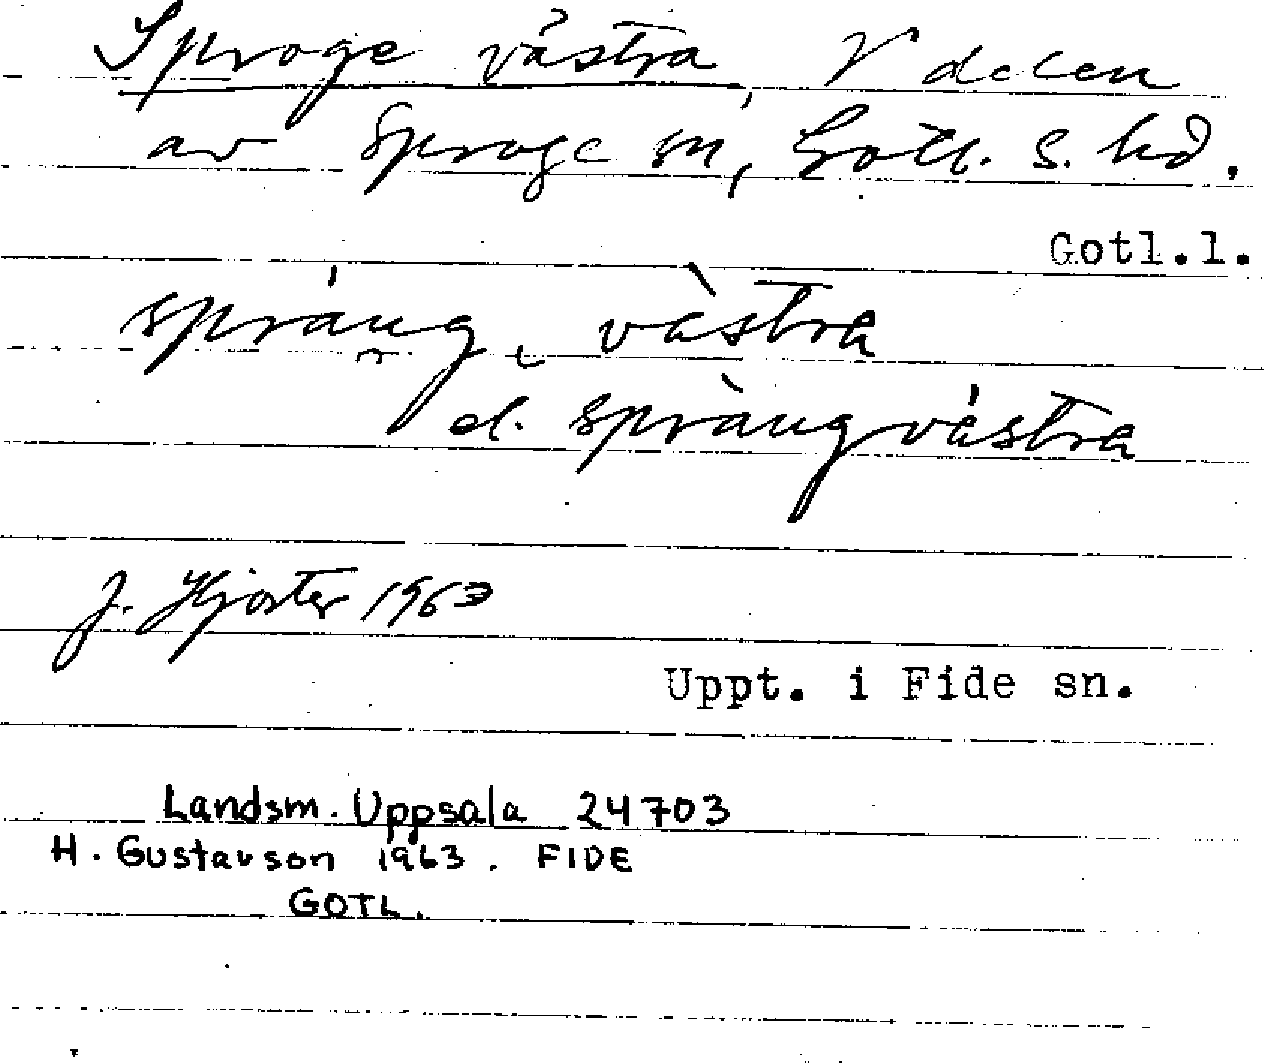 Sproge västra, V delen
av Sproge sn, Gotl. s. hd.
Gotl.l.
spráug västra
el. spràugvástra
J. Hjorter 1963
Uppt. i Fide sn.
Landsm. Uppsala 24703
H. Gustavson 1963. FIDE
GOTL.